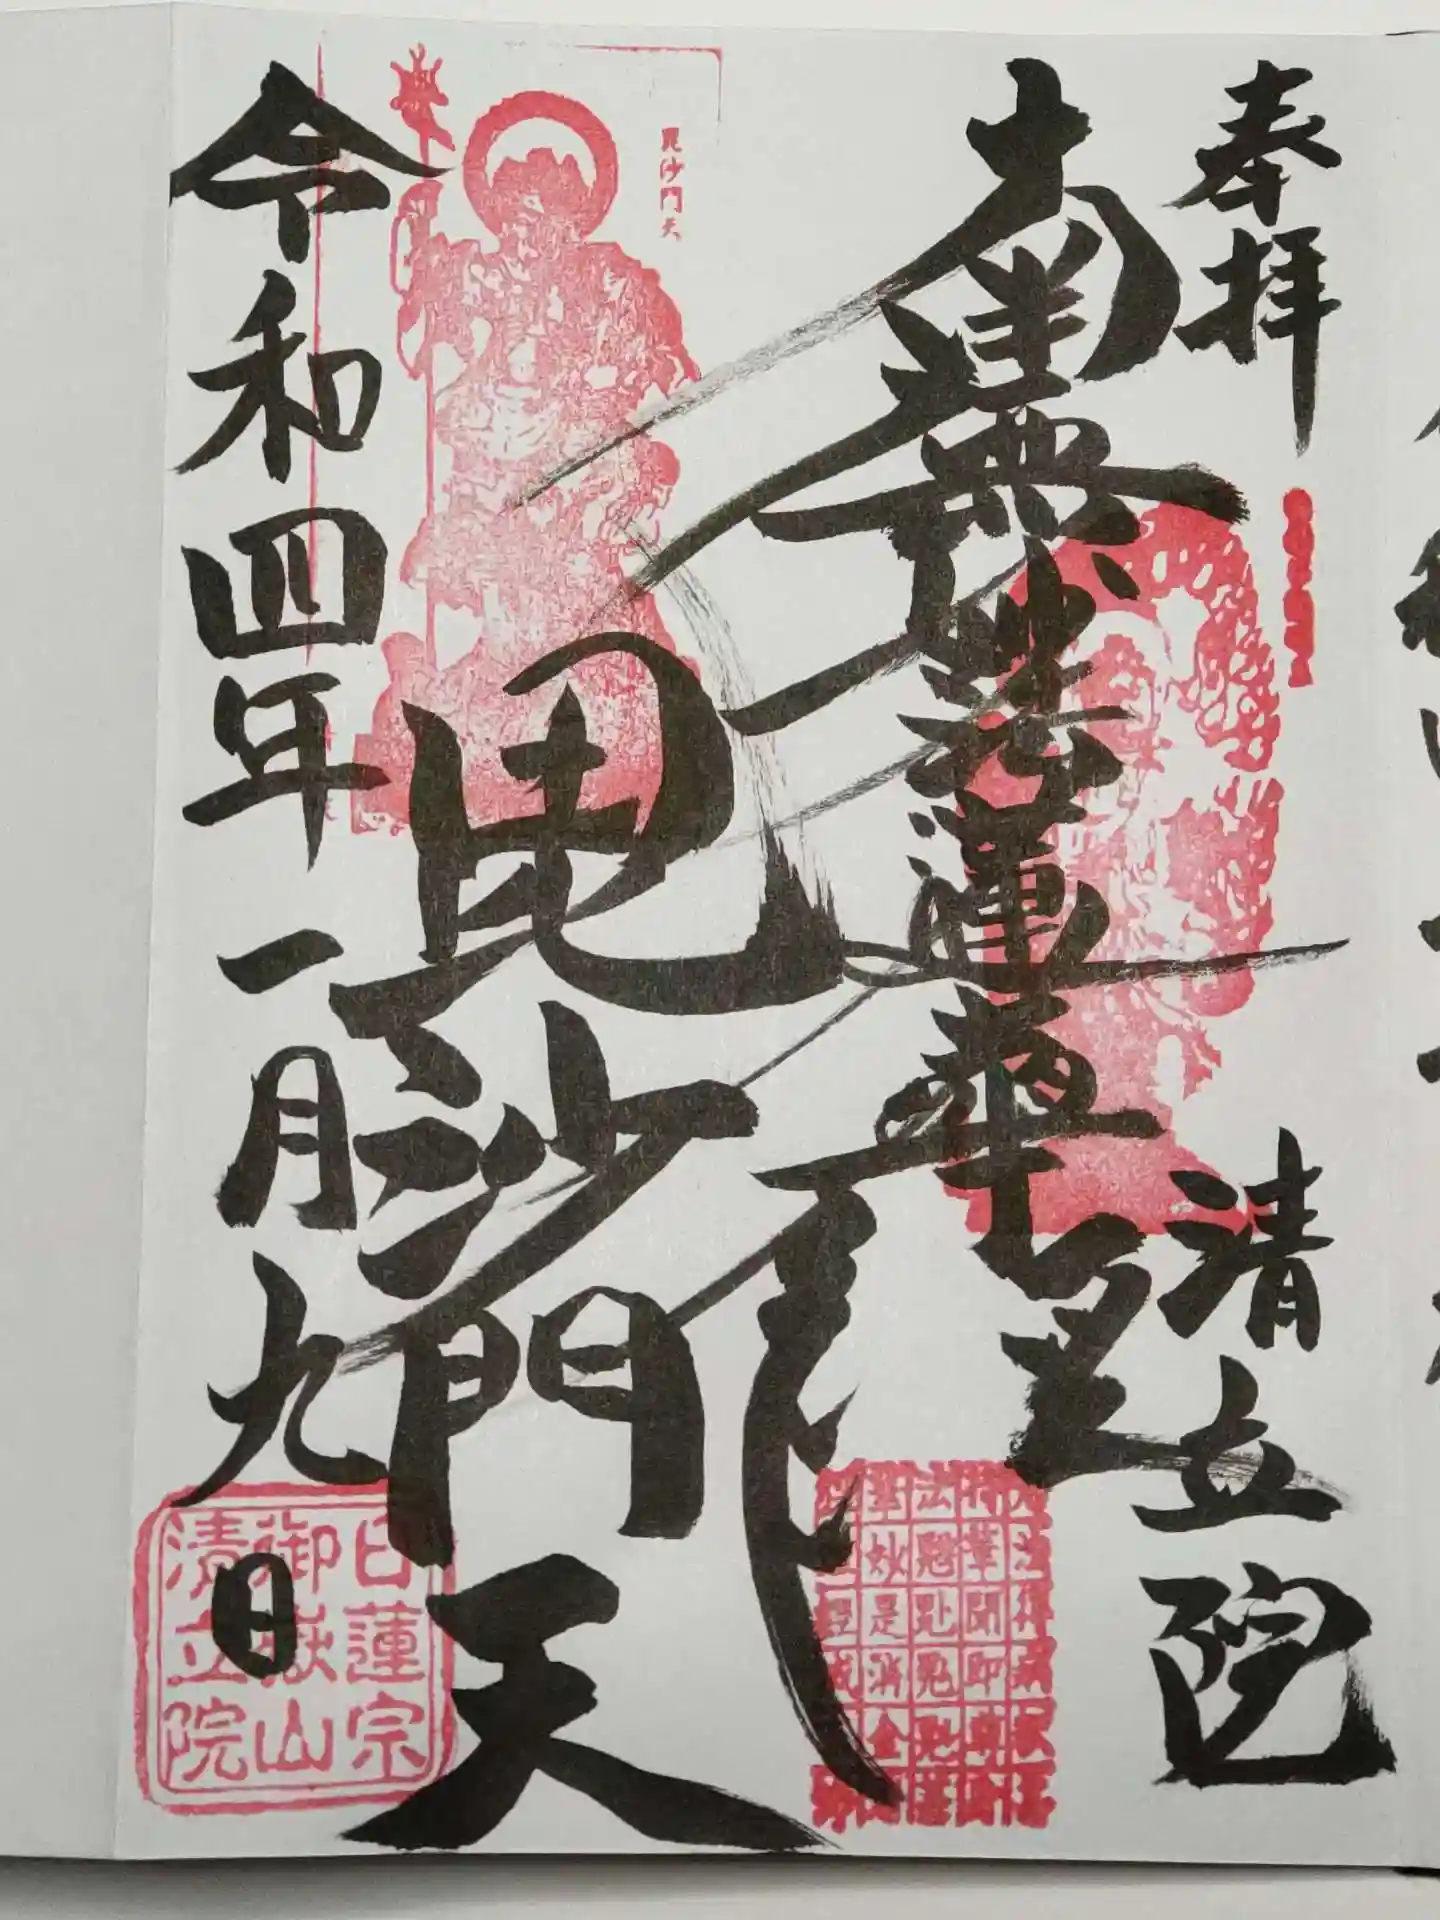 奉拝
清立院
南無妙法蓮華経
毘沙門天
毘沙門天
令和四年一月九日
日蓮宗
御嶽山
清立院